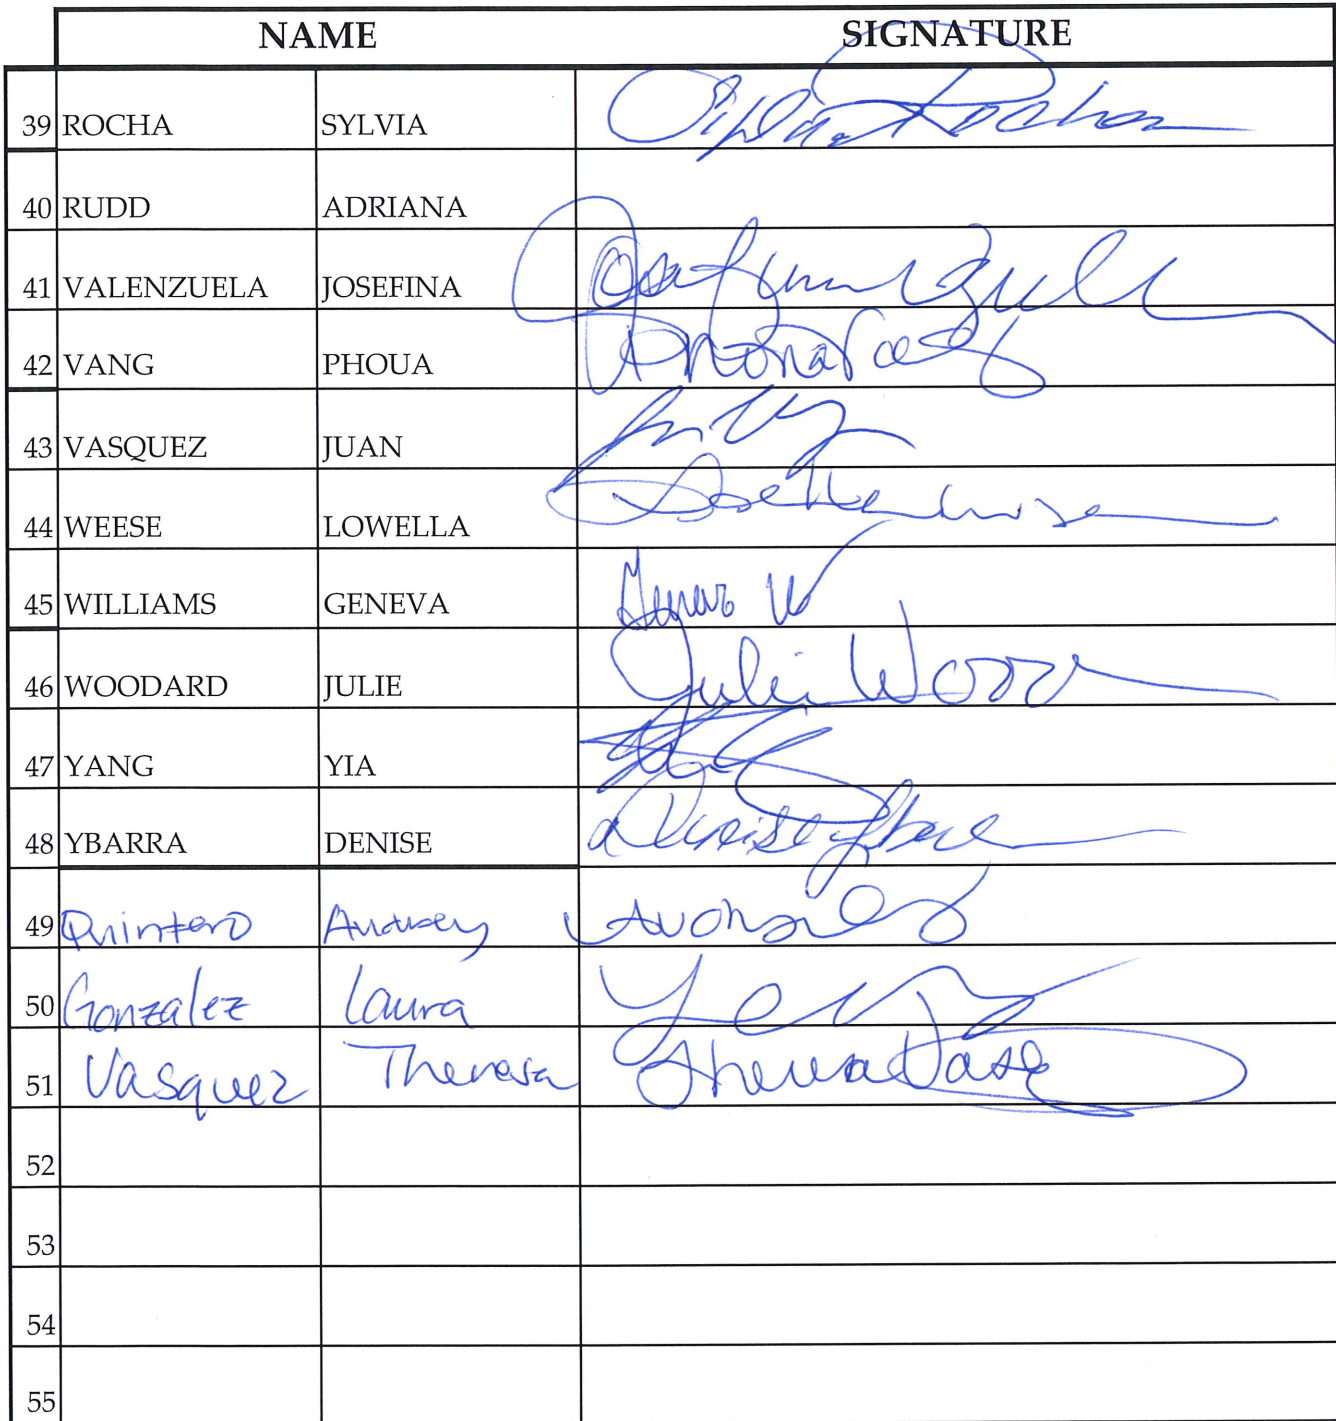 NAME SIGNATURE
39 ROCHA SYLVIA Sylvia Rocha
40 RUDD ADRIANA
41 VALENZUELA JOSEFINA
42 VANG PHOUA
43 VASQUEZ JUAN
44 WEESE LOWELLA
45 WILLIAMS GENEVA
46 WOODARD JULIE Julie
47 YANG YIA
48 YBARRA DENISE Denise
49 Quintero Audrey
50 Gonzalez Laura
51 Vasquez Theresa Theresa
52
53
54
55